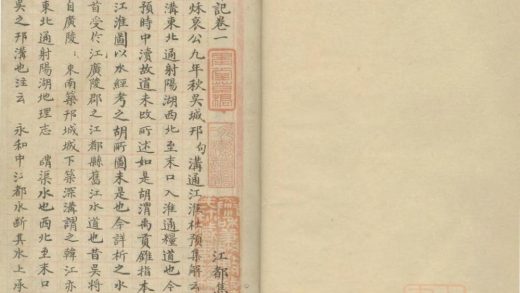 記卷一
江都焦
秌哀公九年秋吳城邗句溝通江淮杜預集解云
溝東北通射陽湖西北至末口入淮通糧道也今
預時中瀆故道未改所述如是胡渭禹貢錐指本
江淮圖以水經考之胡所圖未是也今詳析之水
首受於江廣陵郡之江都縣舊江水道也昔吳將
自廣陵東南築邗城城下築深溝謂之韓江亦
東北通射陽湖地理志 謂渠水也西北至末口
吳之邗溝也注云 永和中江都水斷其水上承